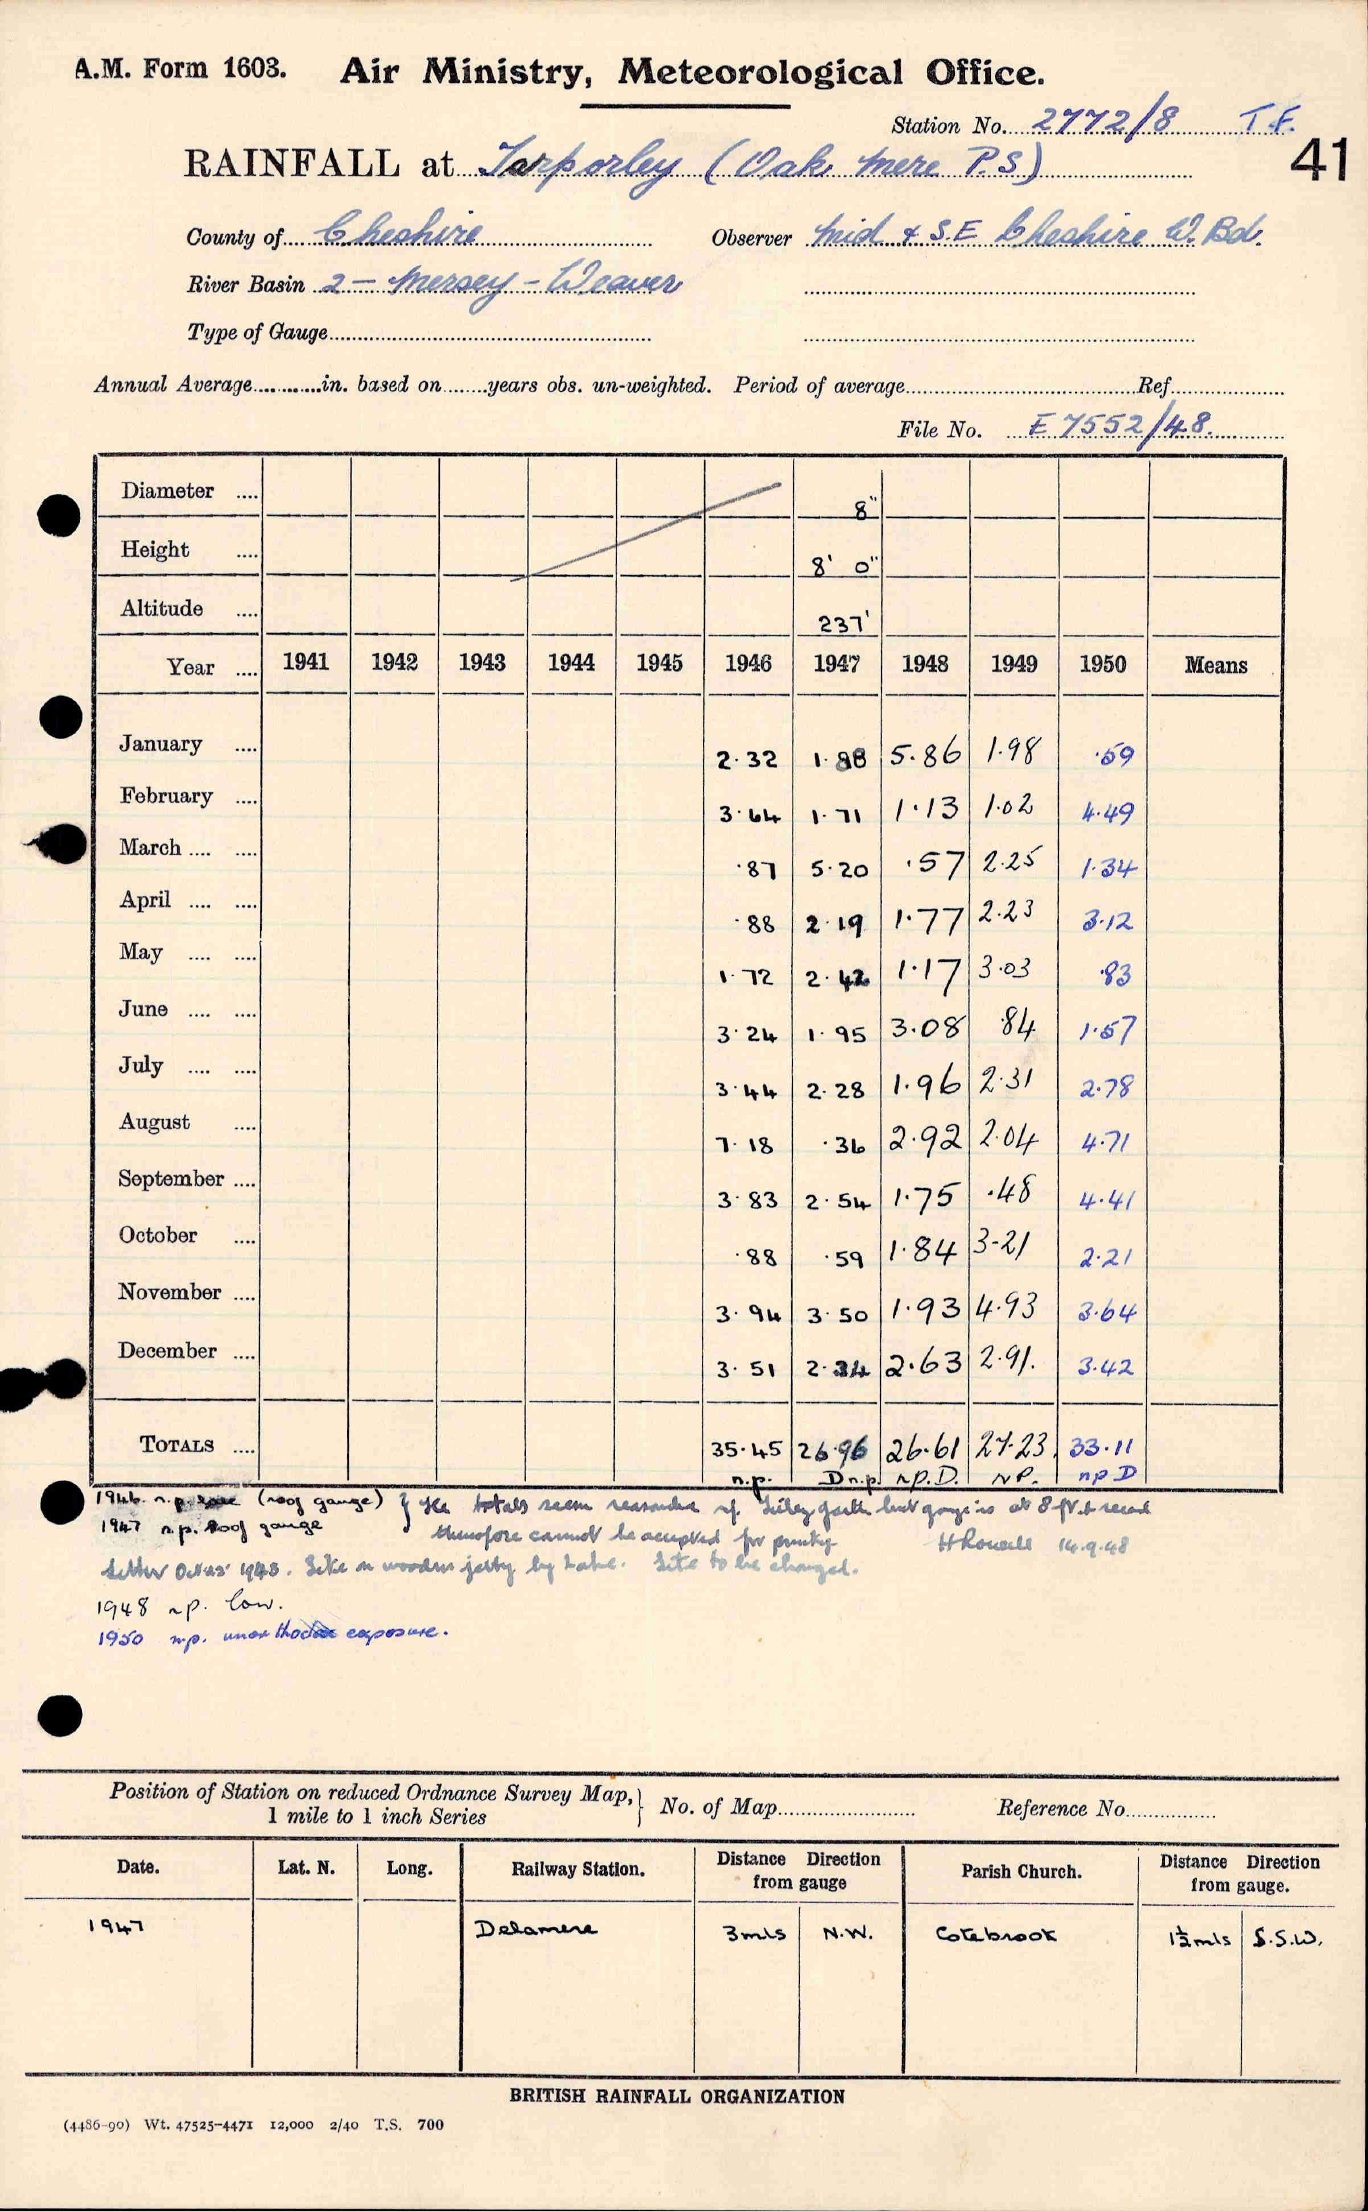 A.M. Form 1603. Air Ministry, Meteorological Office.
Station No. 2772/8 T.F.
41
RAINFALL at Tarporley (Oak Mere P.S)
County of Cheshire Observer Mid & S.E Cheshire W. Bd.
River Basin 2 – Mersey – Weaver
Type of Gauge
Annual Average in. based on years obs. un-weighted. Period of average Ref
File No. E 7552/48.
Diameter .... 8"
Height .... 8' 0"
Altitude .... 237'
Year .... 1941 1942 1943 1944 1945 1946 1947 1948 1949 1950 Means
January .... 2.32 1.88 5.86 1.98 .59
February .... 3.64 1.71 1.13 1.02 4.49
March .... .... .87 5.20 .57 2.25 1.34
April .... .... .88 2.19 1.77 2.23 3.12
May .... .... 1.72 2.42 1.17 3.03 .83
June .... .... 3.24 1.95 3.08 .84 1.57
July .... .... 3.44 2.28 1.96 2.31 2.78
August .... 7.18 .36 2.92 2.04 4.71
September .... 3.83 2.54 1.75 .48 4.41
October .... .88 .59 1.84 3-21 2.21
November .... 3.94 3.50 1.93 4.93 3.64
December .... 3.51 2.34 2.63 2.91. 3.42
TOTALS .... 35.45 26.96 26.61 27.23. 33.11
n.p. D n.p. n.p.D. N.P. n p D
1946 n.p. (roof gauge) } The totals seem reasonable but gauge is at 8 ft &
1947 n.p. Roof gauge therefore cannot be accepted for 14.9.48
Letter Oct 1948. Site on wooden jetty by Lake. Site to be changed.
1948 n.p. low.
1950 n.p. unorthodox exposure.
Position of Station on reduced Ordnance Survey Map, } No. of Map Reference No.
1 mile to 1 inch Series
Date. Lat. N. Long. Railway Station. Distance Direction from gauge Parish Church. Distance Direction from gauge.
1947 Delamere 3 mls N.W. Cotebrook 1½ mls S.S.W.
BRITISH RAINFALL ORGANIZATION
(4486-90) Wt. 47525-4471 12,000 2/40 T.S. 700